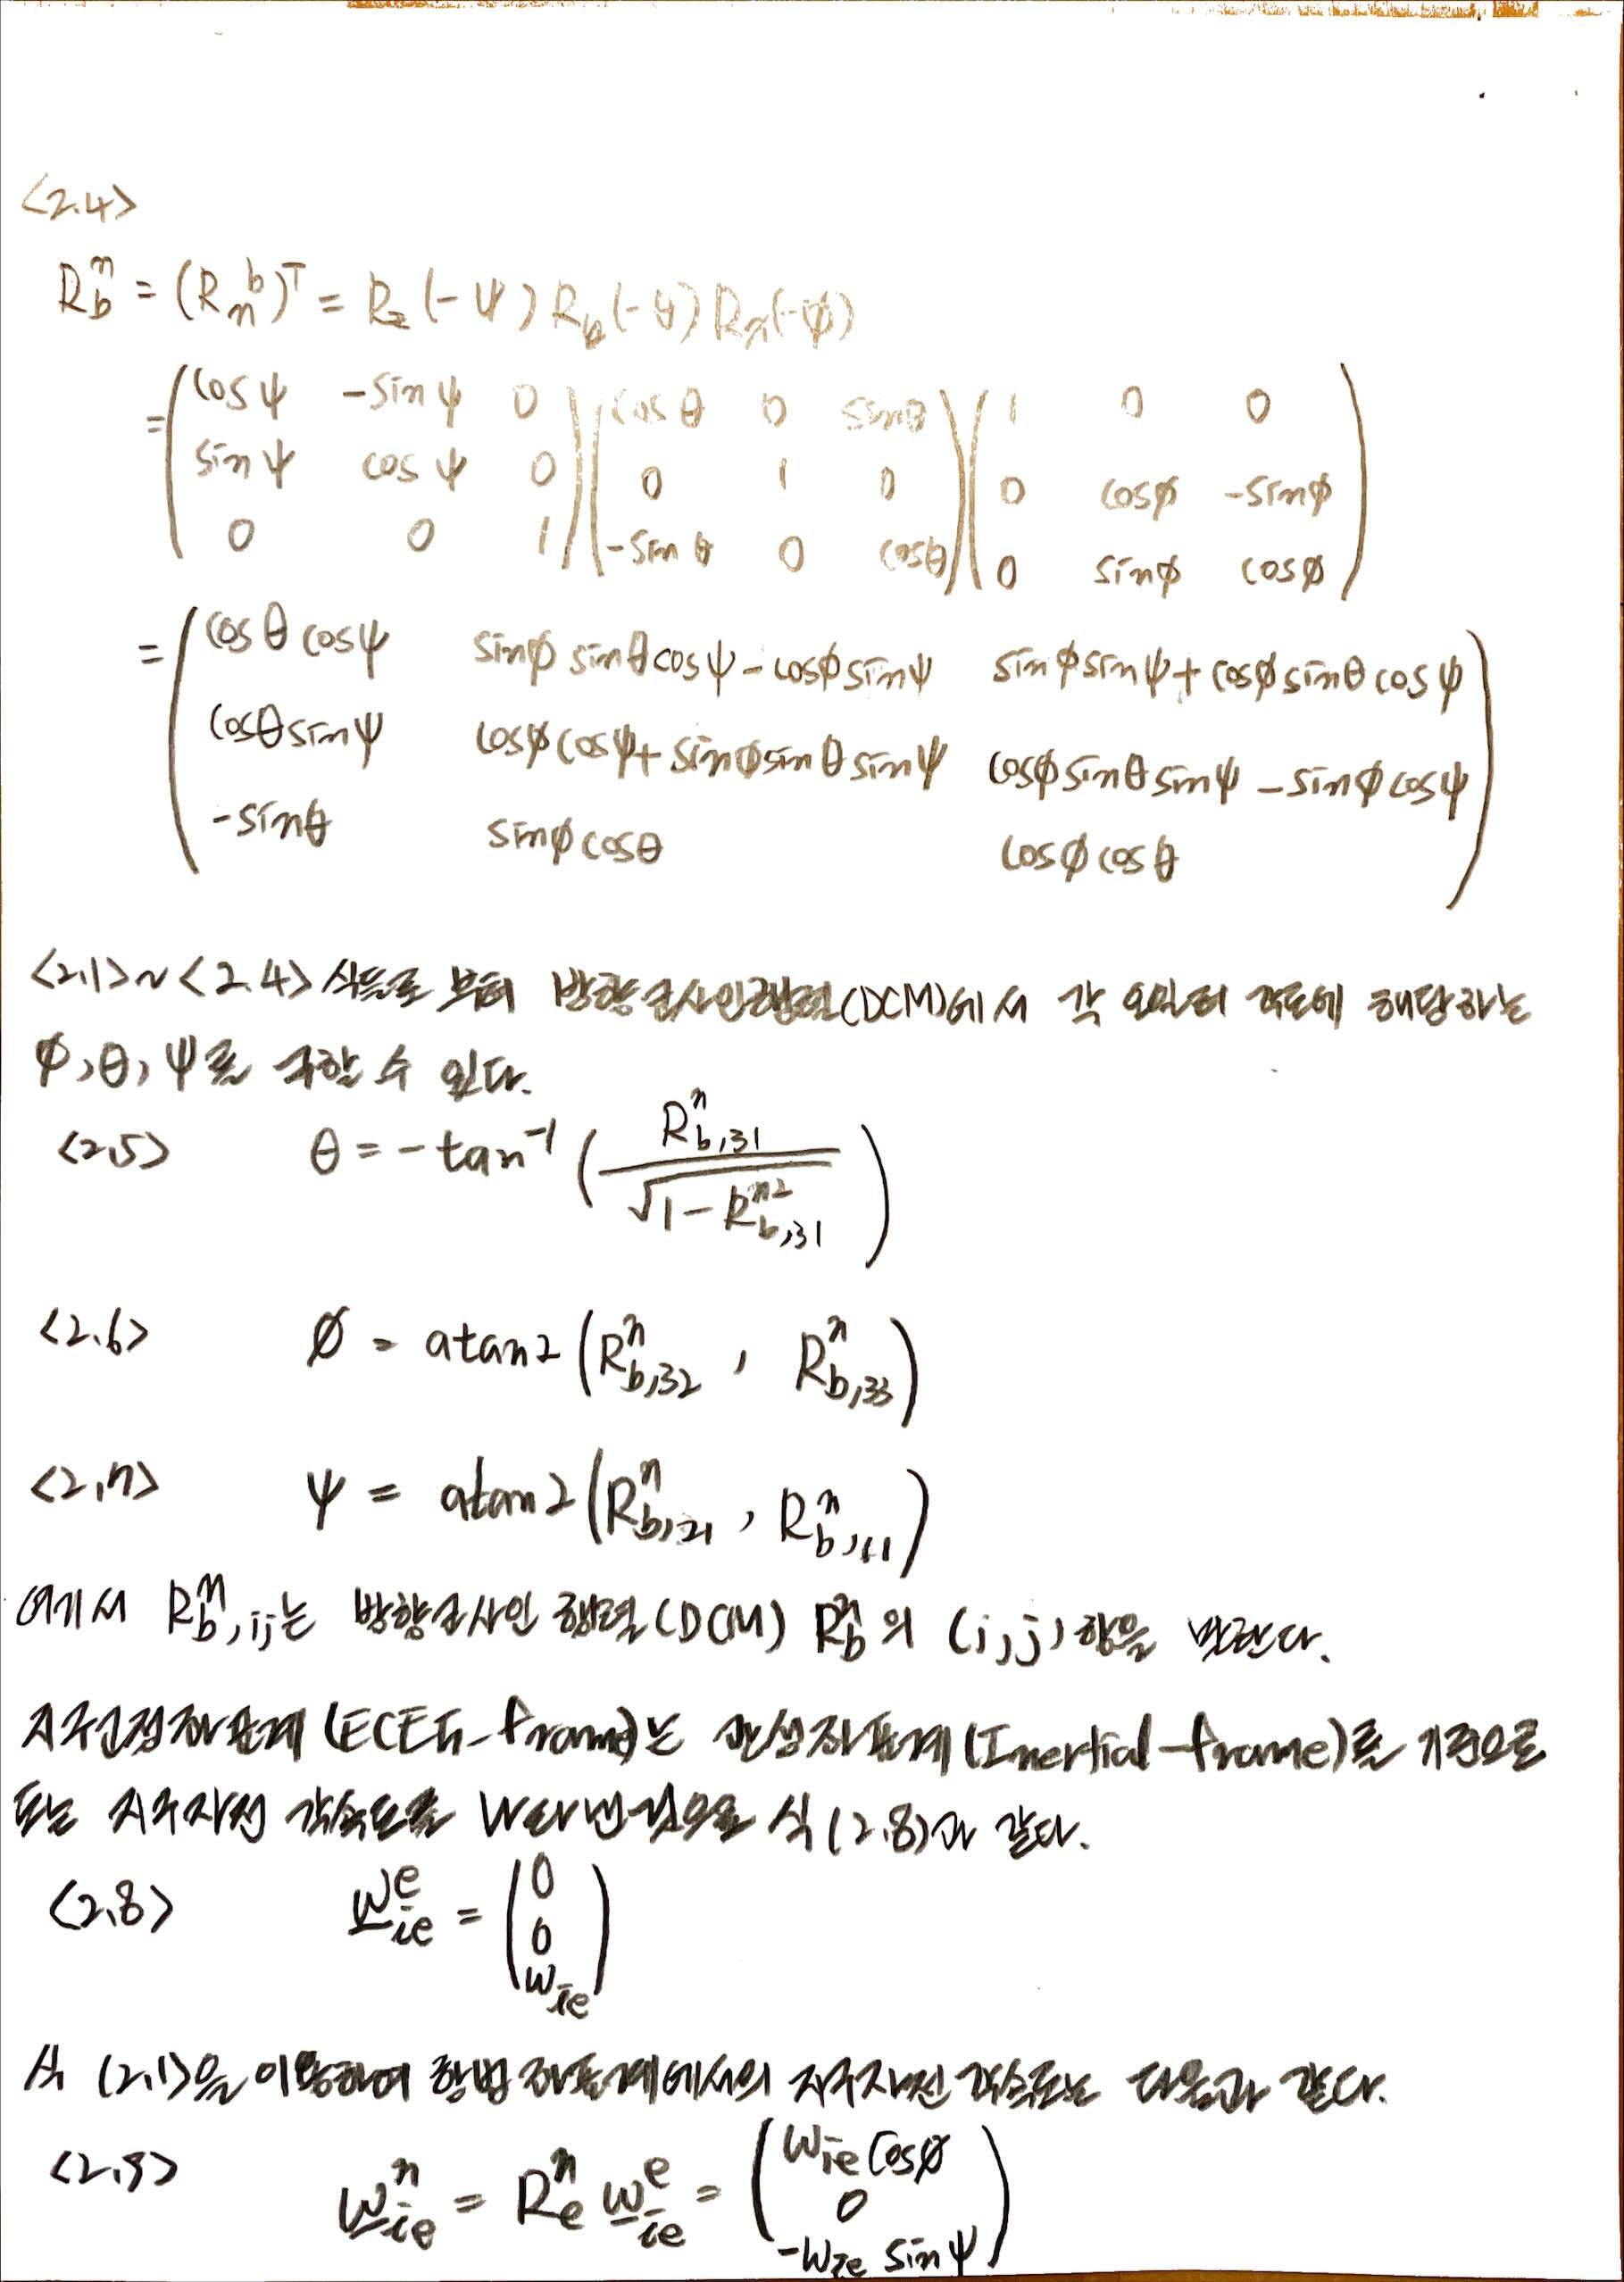 <2.4>
R_b^n = (R_n^b)^T = R_z(-ψ) R_y(-θ) R_x(-φ)
= ( cosψ -sinψ 0 ) ( cosθ 0 sinθ ) ( 1 0 0 )
( sinψ cosψ 0 ) ( 0 1 0 ) ( 0 cosφ -sinφ )
( 0 0 1 ) ( -sinθ 0 cosθ ) ( 0 sinφ cosφ )
= ( cosθcosψ sinφsinθcosψ-cosφsinψ sinφsinψ+cosφsinθcosψ )
( cosθsinψ cosφcosψ+sinφsinθsinψ cosφsinθsinψ-sinφcosψ )
( -sinθ sinφcosθ cosφcosθ )
<2.1>~<2.4> 식들로 부터 방향코사인행렬(DCM)에서 각 오일러 각도에 해당하는
φ, θ, ψ를 구할 수 있다.
<2.5> θ = -tan^-1 ( R^n_b,31 / √(1-R^n2_b,31) )
<2.6> φ = atan2 (R^n_b,32 , R^n_b,33)
<2.7> ψ = atan2 (R^n_b,21 , R^n_b,11)
여기서 R^n_b,ij는 방향코사인 행렬(DCM) R^n_b의 (i,j)항을 말한다.
지구고정좌표계(ECEF-frame)는 관성좌표계(Inertial-frame)를 기준으로
도는 지구자전 각속도를 나타낸것으로 식(2.8)과 같다.
<2.8> ω^e_ie = ( 0
0
ω_ie )
식 (2.1)을 이용하여 항법좌표계에서의 지구자전 각속도는 다음과 같다.
<2.9> ω^n_ie = R^n_e ω^e_ie = ( ω_ie cosφ
0
-ω_ie sinψ )